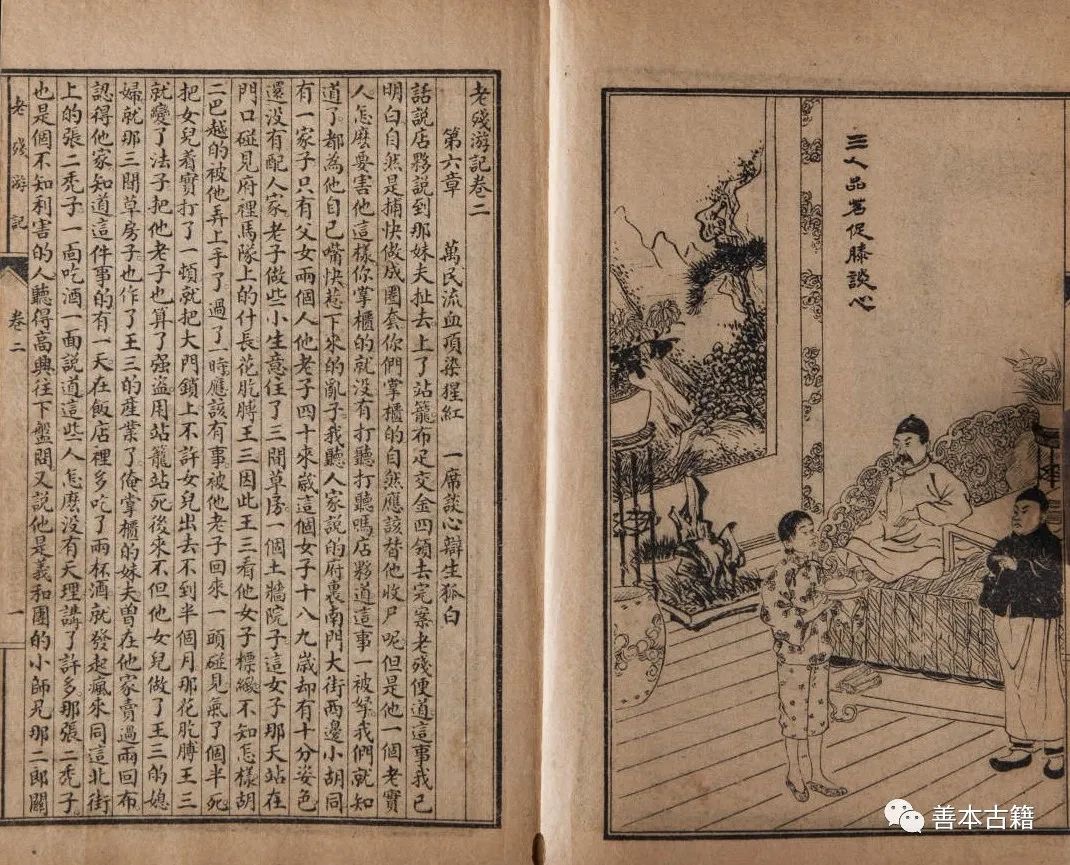 三人品茗促膝談心
老殘游記卷二
第六章 萬民流血頂染猩紅 一席談心辯生狐白
話說店夥說到那妹夫扯去上了站籠布疋交金四領去完案老殘便道這事我已
明白自然是捕快做成圈套你們掌櫃的自然應該替他收尸呢但是他一個老實
人怎麽要害他這樣你掌櫃的就没有打聽打聽嗎店夥道這事一被拿我們就知
道了都為他自己嘴快惹下來的亂子我聽人家說的府裏南門大街西邊小胡同
有一家子只有父女兩個人他老子四十來歲這個女子十八九歲却有十分姿色
還没有配人家老子做些小生意住了三間草房一個土牆院子這女子那天站在
門口碰見府裡馬隊上的什長花肐膊王三因此王三看他女子標緻不知怎樣胡
二巴越的被他弄上手了過了一時應該有事被他老子回來一頭碰見氣了個半死
把女兒着實打了一頓就把大門鎖上不許女兒出去不到半個月那花肐膊王三
就變了法子把他老子也算了强盗用站籠站死後來不但他女兒做了王三的媳
婦就那三間草房子也作了王三的產業了俺掌櫃的妹夫曾在他家賣過兩回布
認得他家知道這件事的有一天在飯店裡多吃了兩杯酒就發起瘋來同這北街
上的張二禿子一面吃酒一面說道這些人怎麽没有天理講了許多那張二禿子
也是個不知利害的人聽得高興往下盤問又說他是義和團的小師兄那二郎關
老殘游記
卷二
一
善本古籍